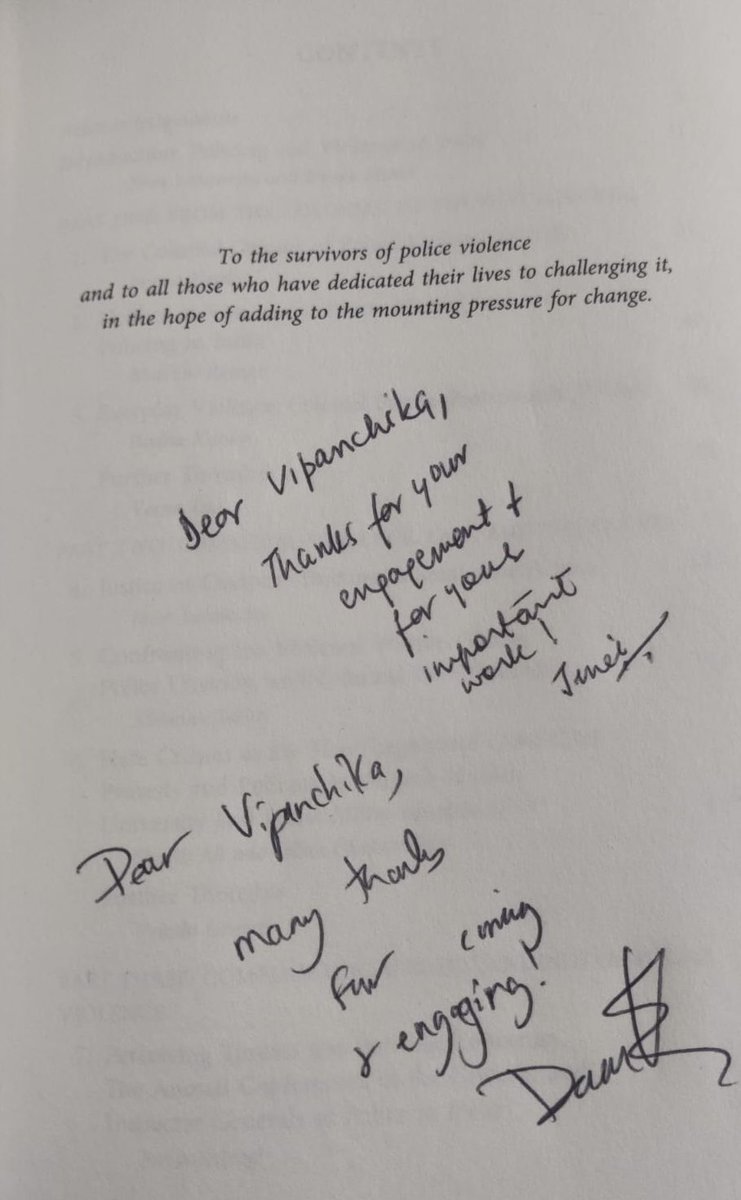 To the survivors of police violence
and to all those who have dedicated their lives to challenging it,
in the hope of adding to the mounting pressure for change.
Dear Vipanchika,
Thanks for your
engagement +
for your
important
work!
Jinee
Dear Vipanchika,
many thanks
for coming
& engaging!